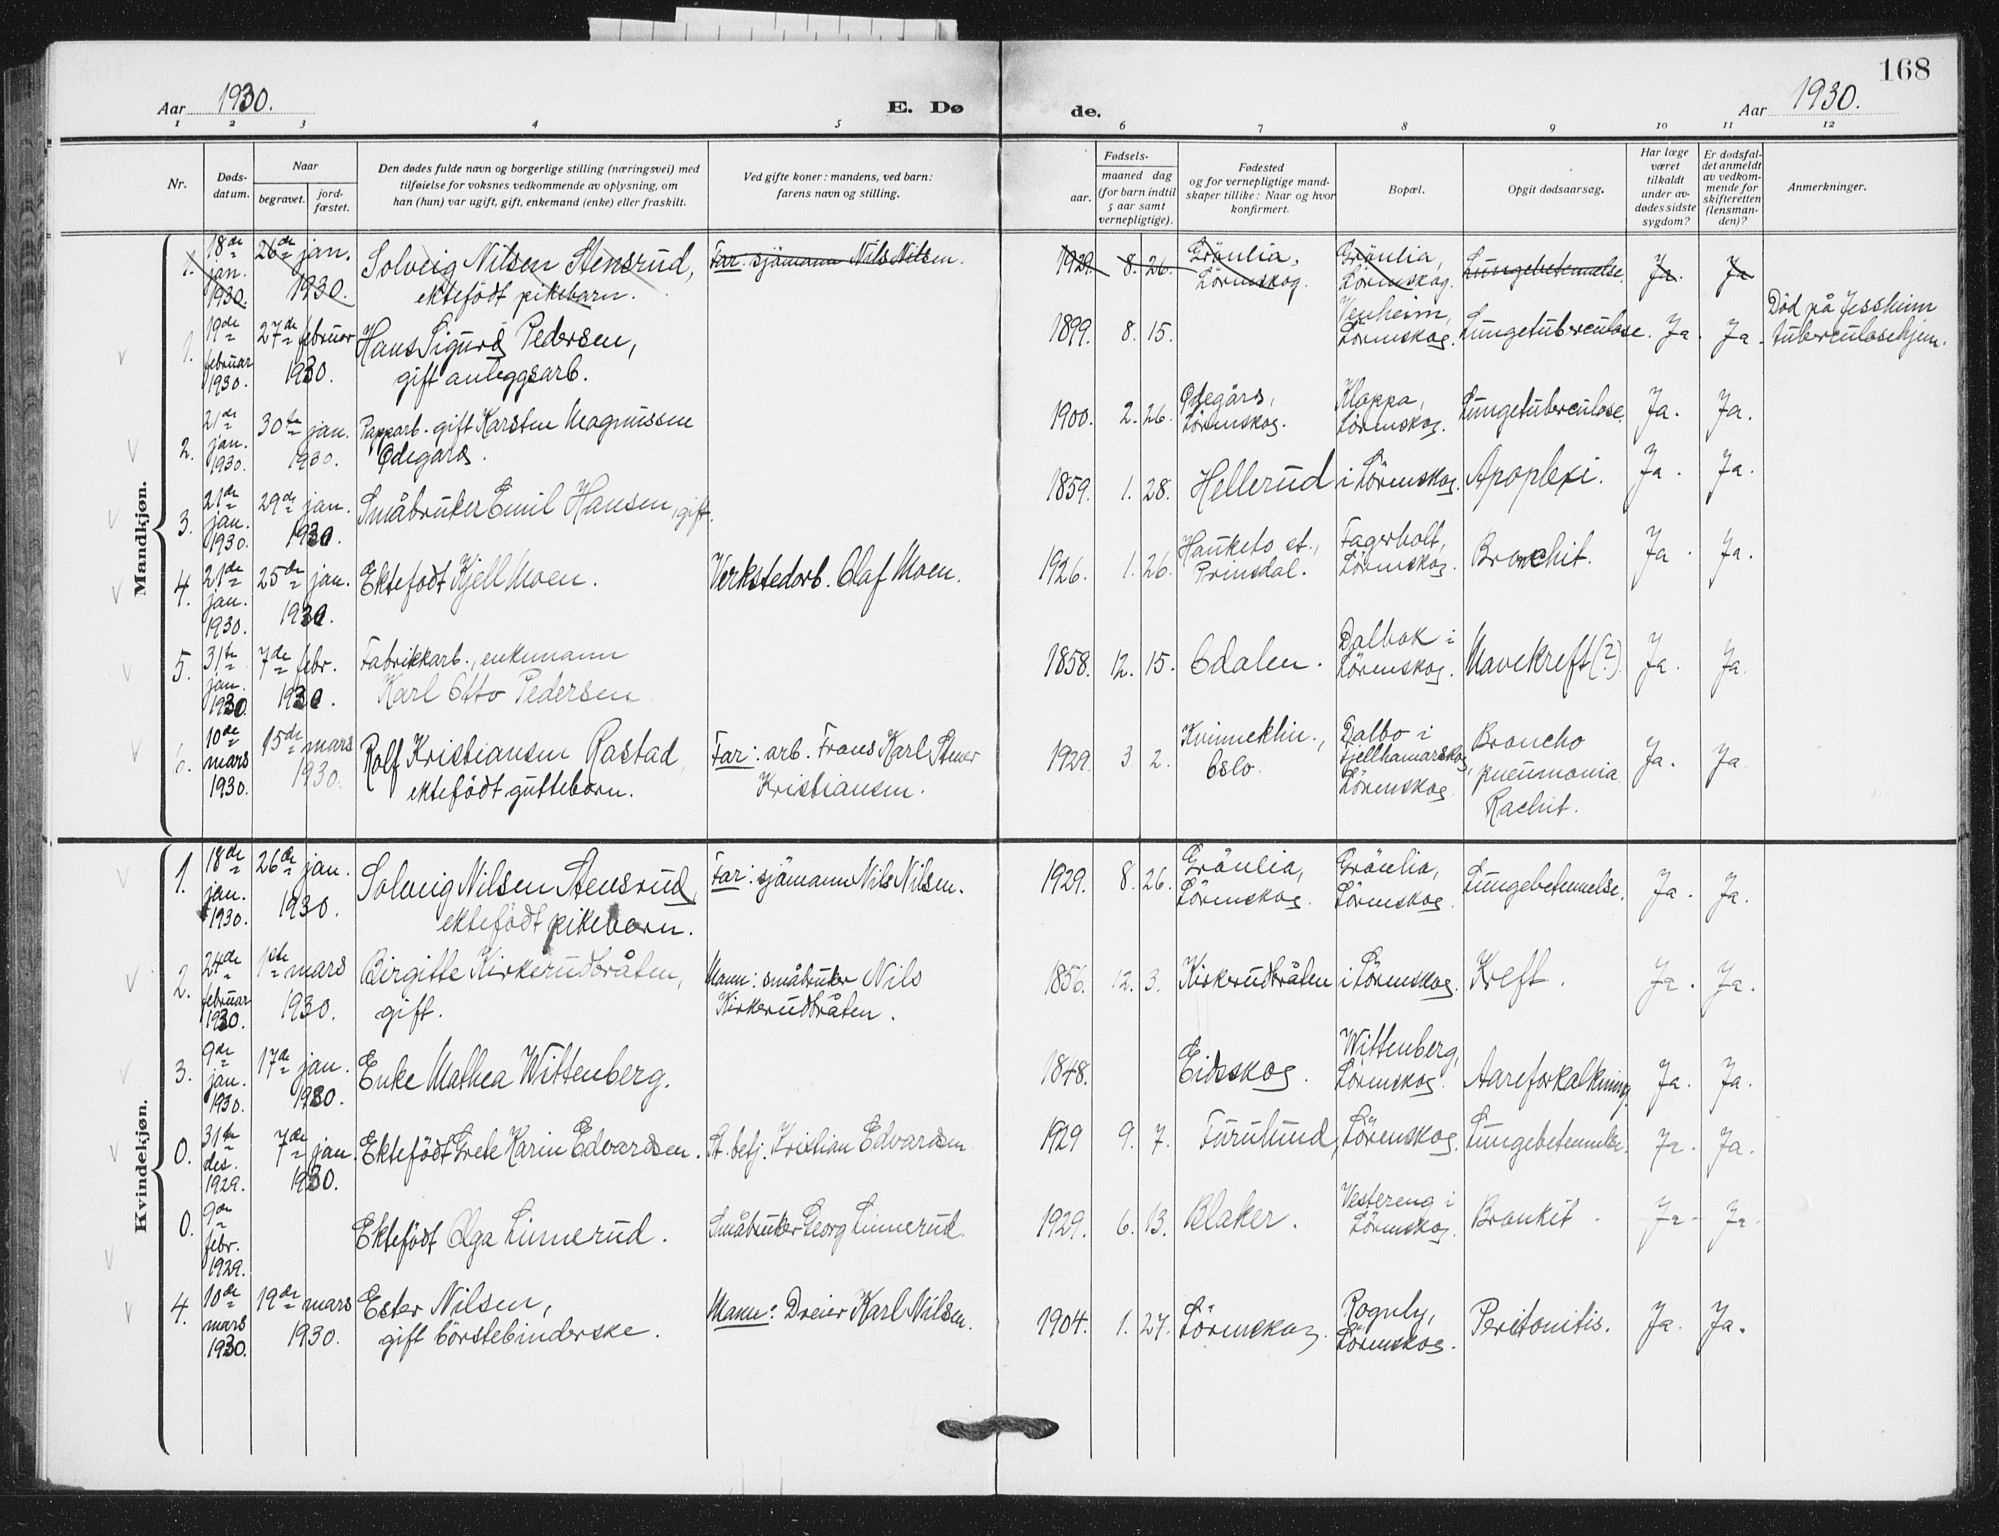 168
Aar 1930.
E. Dø
de.
Aar 1930.
1 2 3 4 5 6 7 8 9 10 11 12
Nr.
Døds-
datum.
Naar
begravet.
jord-
fæstet.
Den dødes fulde navn og borgerlige stilling (næringsvei) med
tilføielse for voksnes vedkommende av oplysning, om
han (hun) var ugift, gift, enkemand (enke) eller fraskilt.
Ved gifte koner: mandens, ved barn:
farens navn og stilling.
Fødsels-
aar.
maaned dag
(for barn indtil
5 aar samt
vernepligtige).
Fødested
og for vernepligtige mand-
skaper tillike: Naar og hvor
konfirmert.
Bopæl.
Opgit dødsaarsag.
Har læge
været
tilkaldt
under av-
dødes sidste
sygdom?
Er dødsfal-
det anmeldt
av vedkom-
mende for
skifteretten
(lensman-
den)?
Anmerkninger.
Mandkjøn.
1. 18de jan. 1930. 26de jan. 1930. Solveig Nilsen Stensrud, Far: sjömann Nils Nilsen. 1929. 8. 26. Grönlia, Lörenskog. Grönlia, Lörenskog. Lungebetennelse. Ja. Ja
ektefödt pikebarn.
1. 19de februar 1930. 27de februar 1930. Hans Sigurd Pedersen, 1899. 8. 15. Venheim, Lörenskog. Lungetuberculose. Ja. Ja. Död på Jessheim
gift anleggsarb. tuberculosehjem.
2. 21de jan. 1930. 30te jan. 1930. Papparb. gift Karsten Magnussen 1900. 2. 26. Ödegård, Lörenskog. Kloppa, Lörenskog. Lungetuberculose. Ja. Ja.
Ödegård.
3. 21de jan. 1930. 29de jan. 1930. Småbruker Emil Hansen, gift. 1859. 1. 28. Hellerud i Lörenskog. Apoplexi. Ja. Ja.
4. 21de jan. 1930. 25de jan. 1930. Ektefödt Kjell Moen. Verkstedarb. Olaf Moen. 1926. 1. 26. Hauketo st., Prinsdal. Fagerholt, Lörenskog. Bronchit. Ja. Ja.
5. 31te jan. 1930. 7de febr. 1930. Fabrikkarb., enkemann 1858. 12. 15. Odalen. Dalbak i Lörenskog. Mavekreft(?). Ja. Ja.
Karl Otto Pedersen
6. 10de mars 1930. 15de mars 1930. Rolf Kristiansen Rastad, Far: arb. Frans Karl Stener 1929. 3 2. Kvinneklin., Oslo. Dalbo i Fjellhamarskog, Lörenskog. Broncho
ektefödt guttebarn. Kristiansen. pneumonia
Rachit. Ja. Ja
Kvindekjøn.
1. 18de jan. 1930. 26de jan. 1930. Solveig Nilsen Stensrud, Far: sjömann Nils Nilsen. 1929. 8. 26. Grönlia, Lörenskog. Grönlia, Lörenskog. Lungebetennelse. Ja. Ja.
ektefödt pikebarn.
2. 24de februar 1930. 1ste mars 1930. Birgitte Kirkerudbråten, Mann: småbruker Nils 1856. 12. 3. Kirkerudbråten i Lörenskog. Kreft. Ja. Ja.
gift. Kirkerudbråten.
3. 9de jan. 1930. 17de jan. 1930. Enke Mathea Wittenberg. 1848. Eidsskog. Wittenberg, Lörenskog. Aareforkalkning. Ja. Ja.
0. 31te des. 1929. 7de jan. 1930. Ektefödt Grete Karin Edvardsen. St. betj. Kristian Edvardsen 1929 9. 7. Furulund, Lörenskog. Lungebetennelse. Ja. Ja.
0. 9de febr. 1929. Ektefödt Olga Linnerud. Småbruker Georg Linnerud. 1929. 6. 13. Blaker. Vestereng i Lörenskog. Bronkit. Ja. Ja.
4. 10de mars 1930. 19de mars 1930. Ester Nilsen, Mann: Dreier Karl Nilsen. 1904. 1. 27. Lörenskog. Rognly, Lörenskog. Peritonitis. Ja. Ja.
gift börstebinderske.